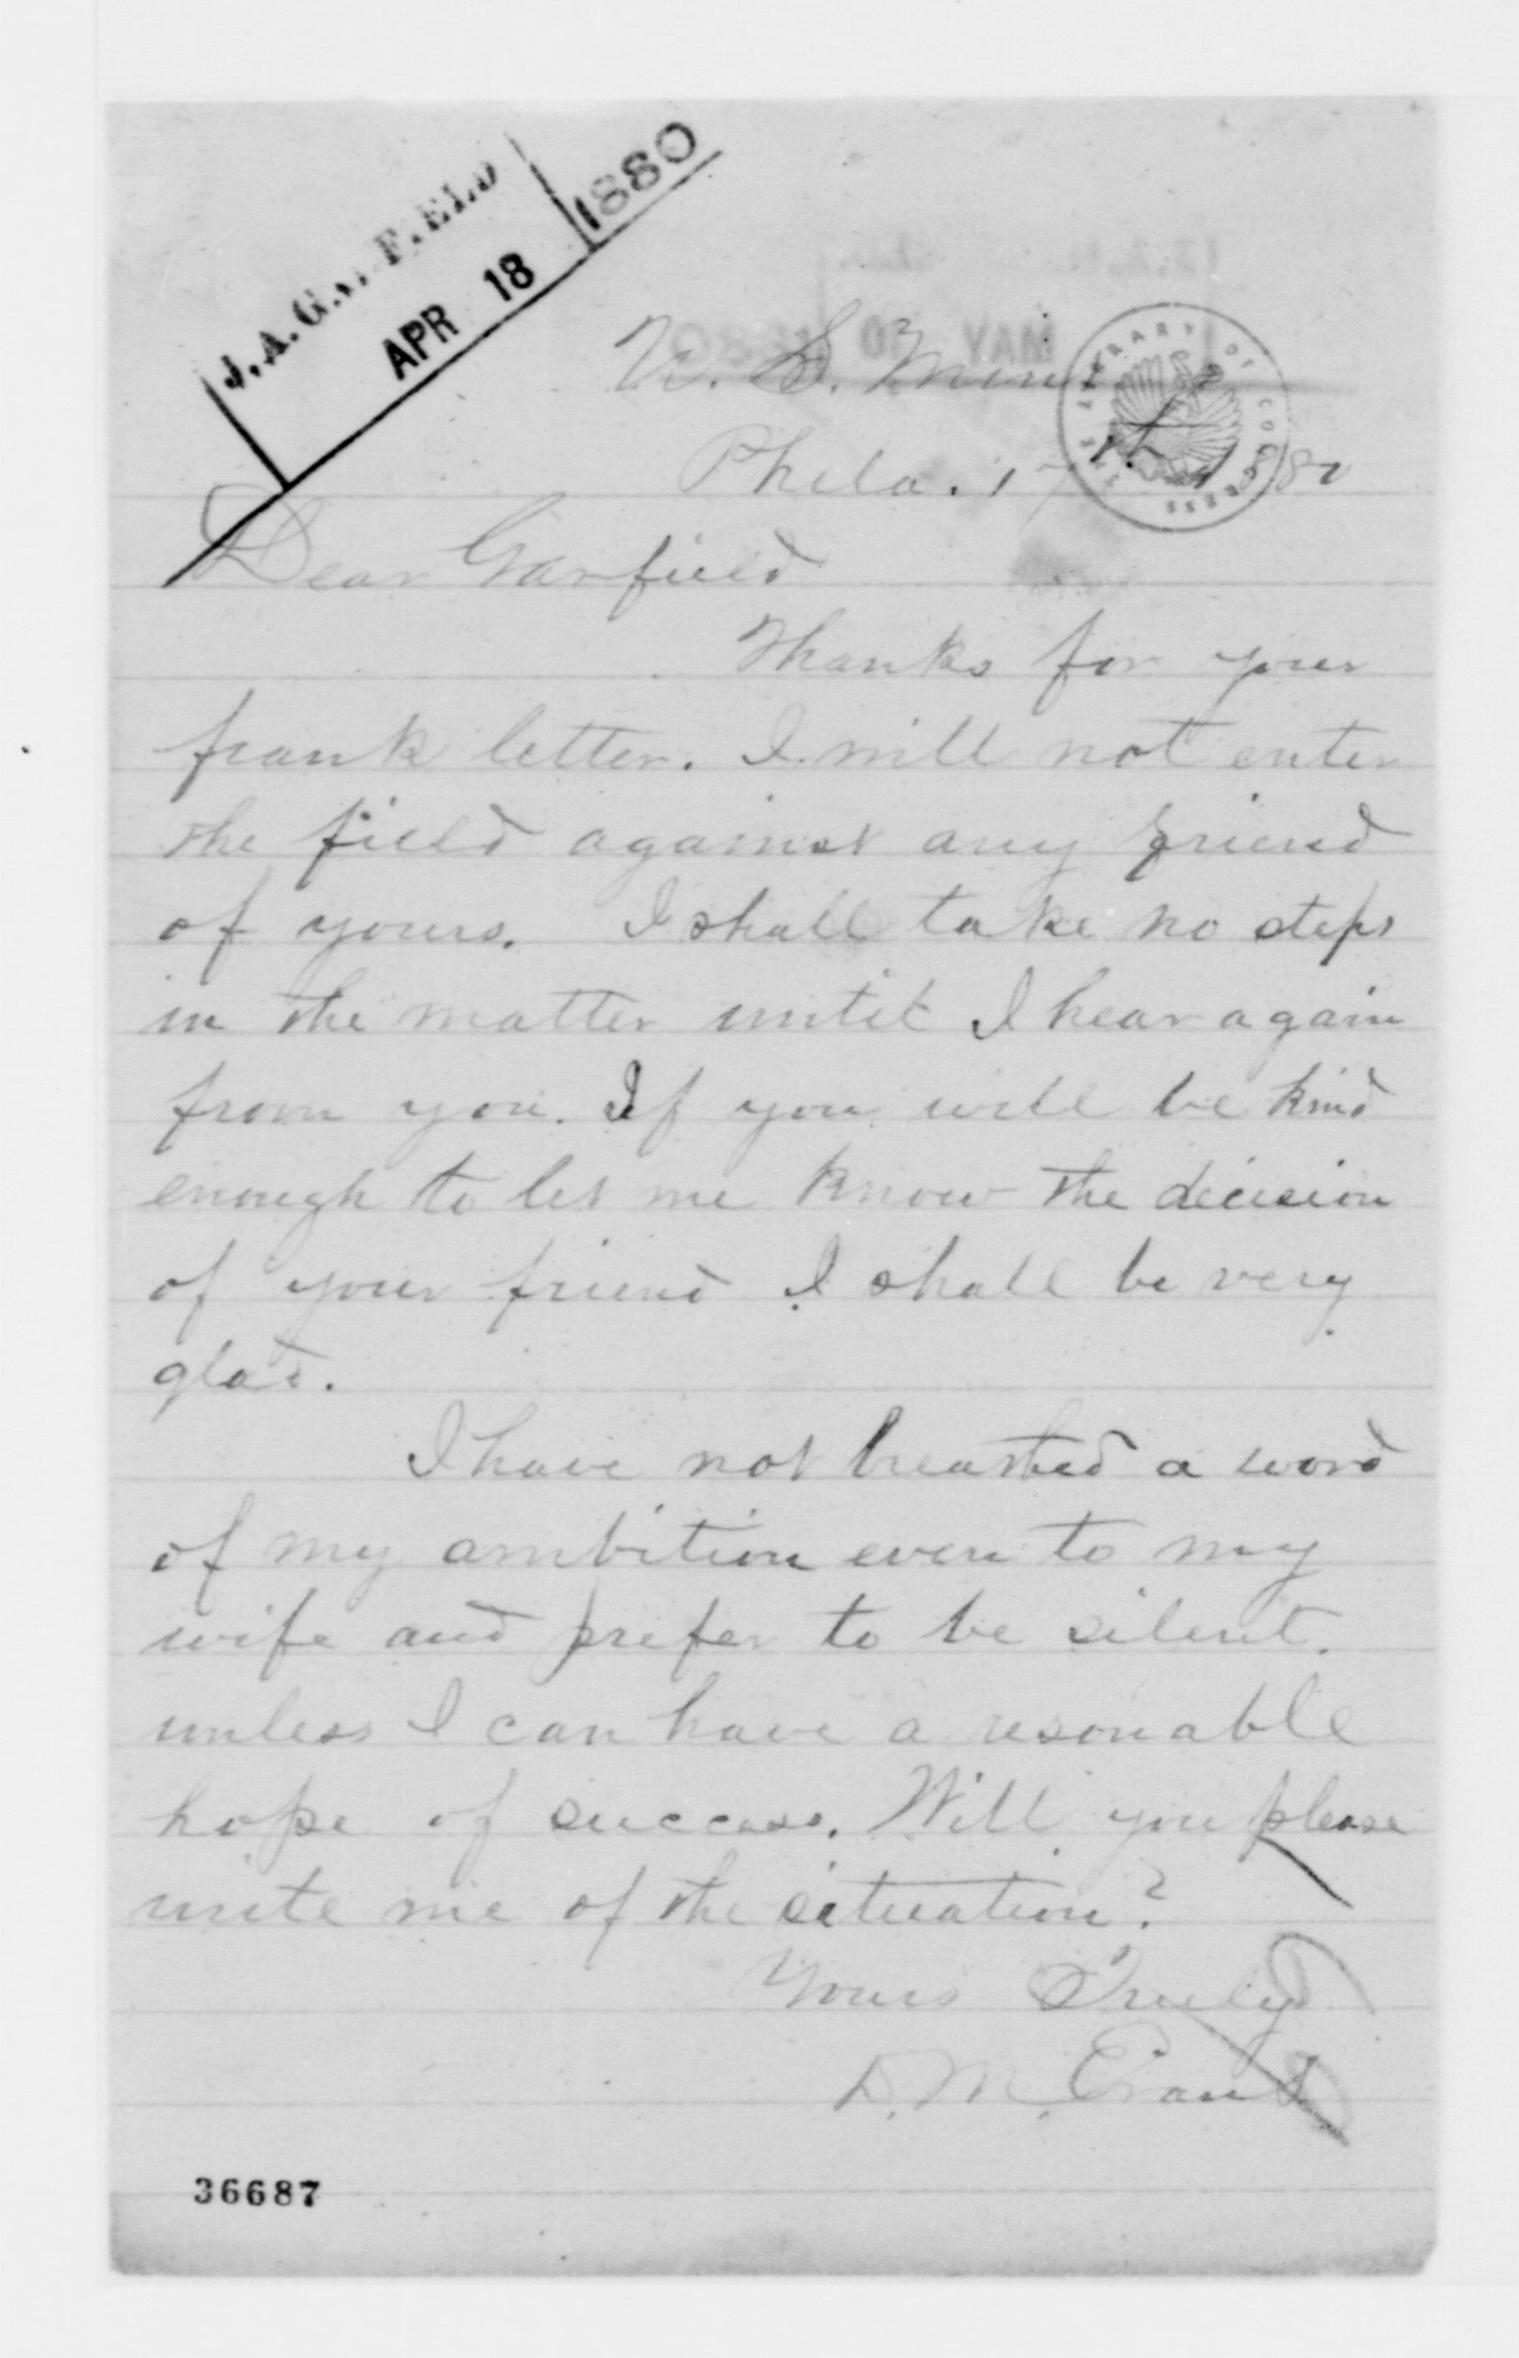 J. A. GARFIELD
APR 18 1880
U. S. Mint
Phila. 17th 80
Dear Garfield
Thanks for your
frank letter. I will not enter
the field against any friend
of yours. I shall take no steps
in the matter until I hear again
from you. If you will be kind
enough to let me know the decision
of your friend I shall be very
glad.
I have not breathed a word
of my ambition even to my
wife and prefer to be silent.
unless I can have a resonable
hope of success. Will you please
write me of the situation?
Yours Truly
D. M. Evans
36687